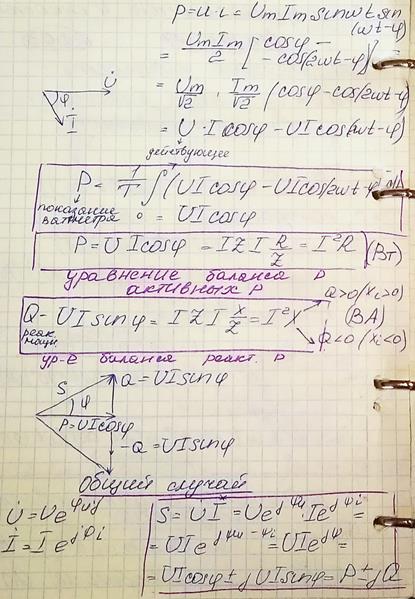 p = u · i = Um Im sinωt sin(ωt-φ)
= UmIm/2 [cosφ - cos(2ωt-φ)] =
φ U̇ İ
= Um/√2 · Im/√2 (cosφ - cos(2ωt-φ)
= U · I cosφ - UI cos(2ωt-φ)
действующее
P = 1/T ∫ (UI cosφ - UI cos(2ωt-φ) dt
показание ваттметра 0 = UI cosφ
P = UI cosφ = I Z I R/Z = I²R (Вт)
уравнение баланса P
активных P
Q = UI sinφ = I Z I X/Z = I²X
реак. мощн
Q>0 (Xi>0)
(ВА)
Q<0 (Xi<0)
ур-е баланса реакт. P
S φ Q = UI sinφ
P = UI cosφ
-Q = UI sinφ
Общий случай
U̇ = Ue^jφu
İ = I e^jφi
S = UI* = Ue^jφu · Ie^jφi =
= UI e^jφu-φi = UIe^jφ =
= UI cosφ ± j UI sinφ = P ± jQ